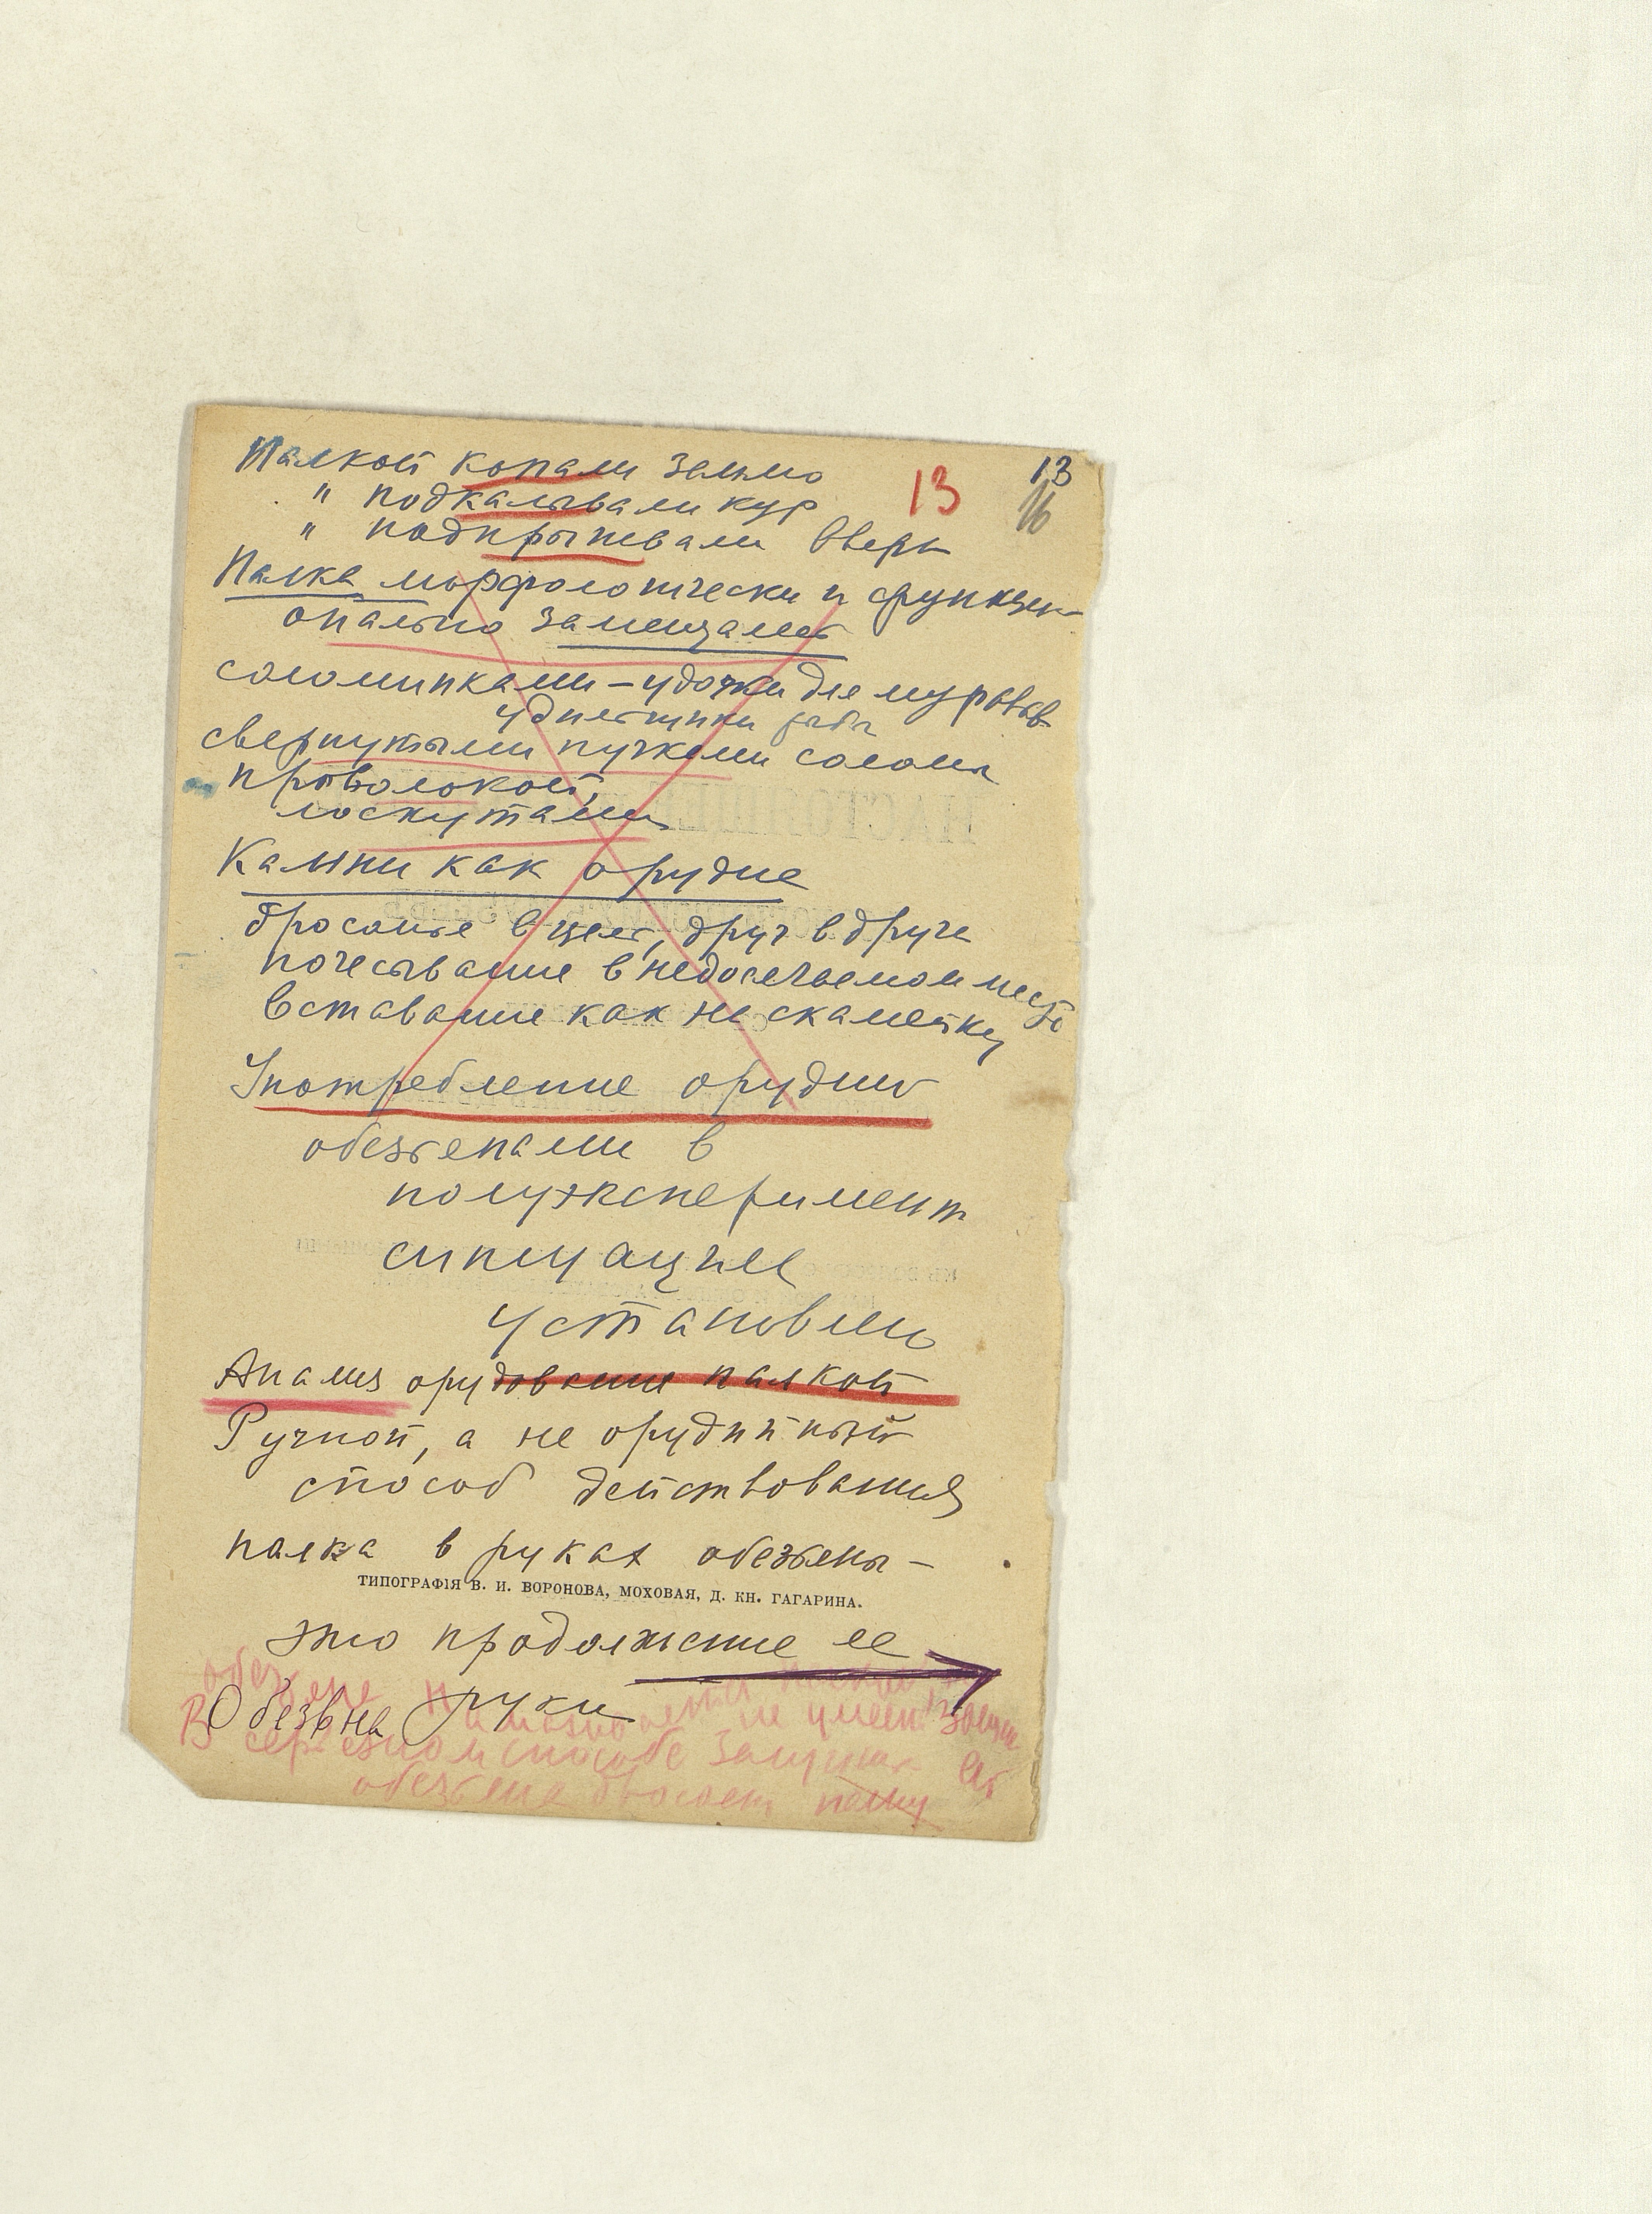 Палкой копали землю
" подкалывали кур
" подпрыгивали вверх
13
13
16
Палка морфологически и функци-
онально замещалась
соломинками – удочки для муравьев
удилищики рыбы
свернутыми пучками соломы
проволокой,
лоскутами
Камни как орудие
бросание в цель, друг в друга
почесывание в недосягаемом месте
вставание как на скамейку
Употребление орудий
обезьянами в
полуэксперимент
ситуациях
установлено
Анализ орудования палкой
Ручной, а не орудийный
способ действования
палка в руках обезьяны –
ТИПОГРАФІЯ В. И. ВОРОНОВА, МОХОВАЯ, Д. КН. ГАГАРИНА.
это продолжение ее
руки
Обезьяна
обезьяна не умеет
В серьезном способе защиты
обезьяна бросает палку